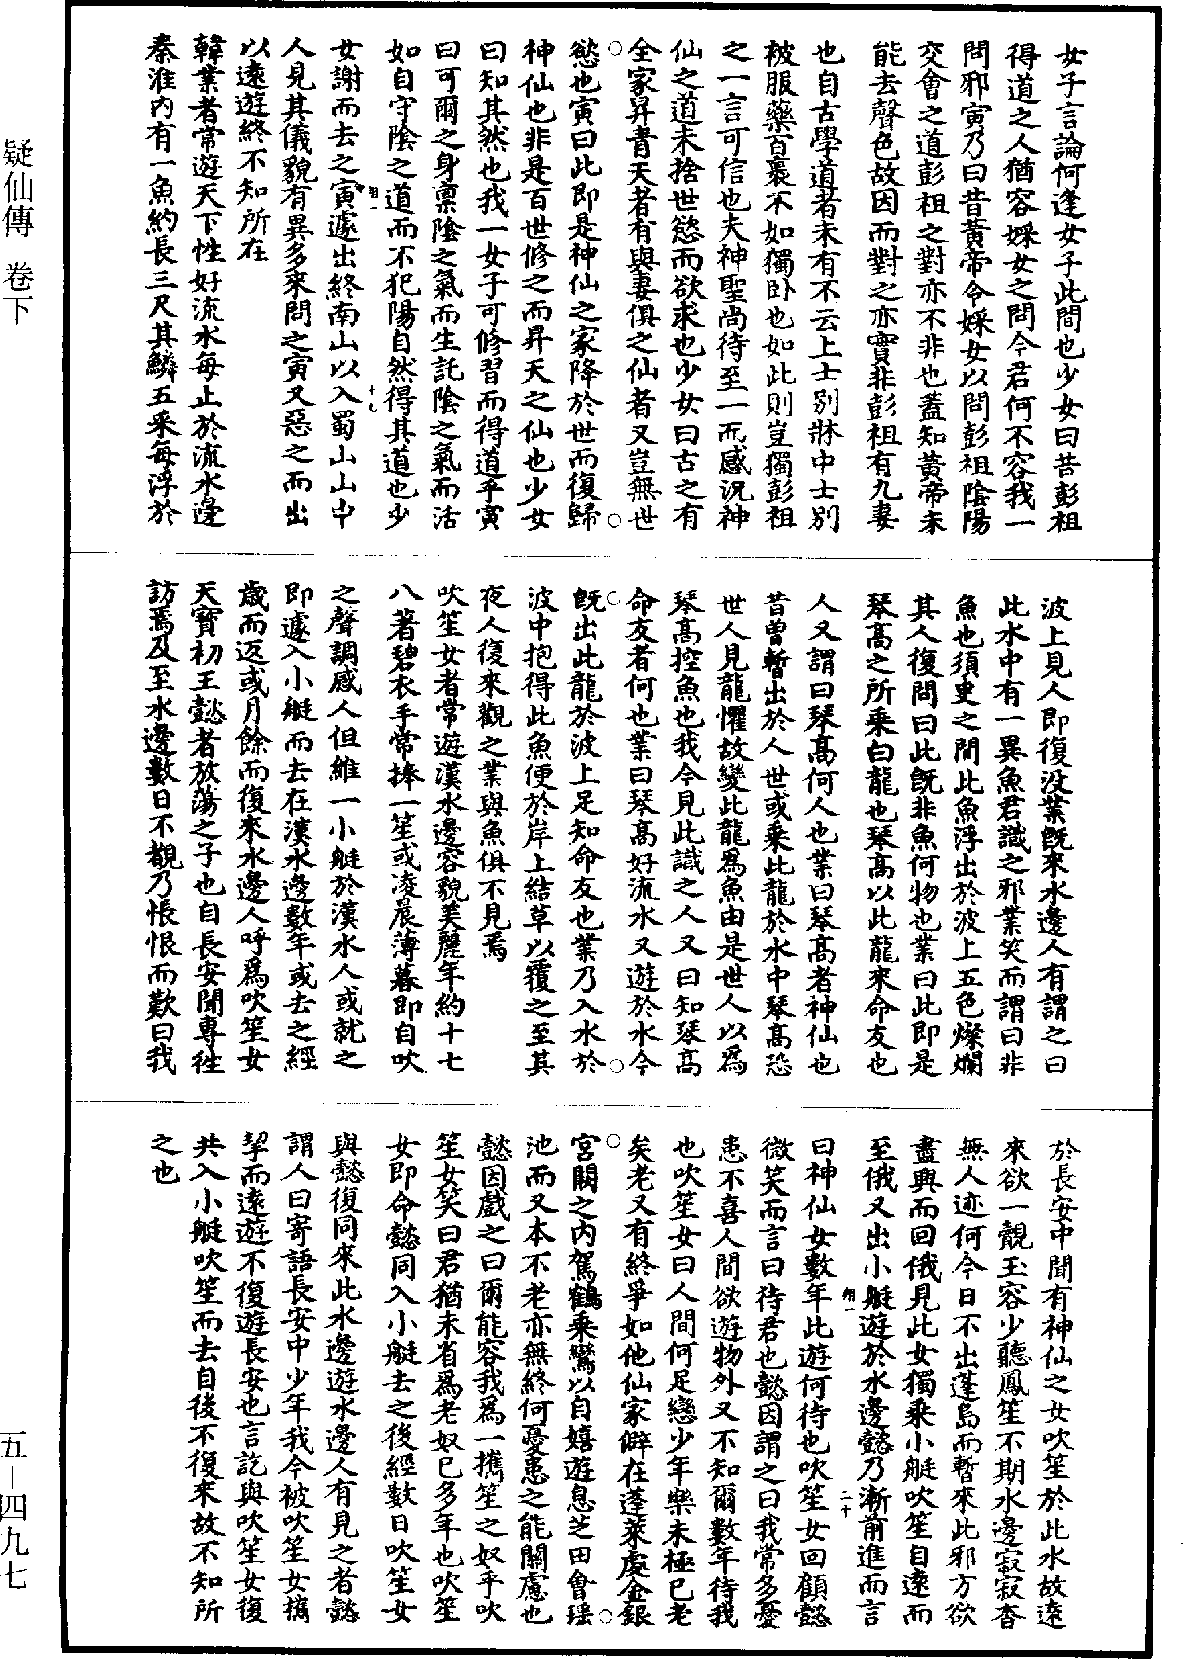 女子言論何逢女子此間也少女曰昔彭祖
得道之人猶容婇女之問今君何不容我一
問邪寅乃曰昔黃帝令婇女以問彭祖陰陽
交會之道彭祖之對亦不非也蓋知黃帝未
能去聲色故因而對之亦實非彭祖有九妻
也自古學道者未有不云上士別牀中士別
被服藥百裹不如獨卧也如此則豈獨彭祖
之一言可信也夫神聖尚待至一而感況神
仙之道未捨世慾而欲求也少女曰古之有
全家昇青天者有與妻俱之仙者又豈無世
慾也寅曰此即是神仙之家降於世而復歸
神仙也非是百世修之而昇天之仙也少女
曰知其然也我一女子可修習而得道乎寅
曰可爾之身禀陰之氣而生託陰之氣而活
如自守陰之道而不犯陽自然得其道也少
翔一
十九
女謝而去之寅遽出終南山以入蜀山山中
人見其儀貌有異多來問之寅又惡之而出
以遠遊終不知所在
韓業者常遊天下性好流水每止於流水邊
秦淮内有一魚約長三尺其鱗五采每浮於
波上見人即復没業既來水邊人有謂之曰
此水中有一異魚君識之邪業笑而謂曰非
魚也須臾之間此魚浮出於波上五色燦爛
其人復問曰此既非魚何物也業曰此即是
琴高之所乘白龍也琴高以此龍來命友也
人又謂曰琴高何人也業曰琴高者神仙也
昔曾暫出於人世或乘此龍於水中琴高恐
世人見龍懼故變此龍爲魚由是世人以爲
琴高控魚也我今見此識之人又曰知琴高
命友者何也業曰琴高好流水又遊於水今
既出此龍於波上足知命友也業乃入水於
波中抱得此魚便於岸上結草以覆之至其
夜人復來觀之業與魚俱不見焉
吹笙女者常遊漢水邊容貌美麗年約十七
八著碧衣手常捧一笙或凌晨薄暮即自吹
之聲調感人但維一小艇於漢水人或就之
即遽入小艇而去在漢水邊數年或去之經
歲而返或月餘而復來水邊人呼爲吹笙女
天寶初王懿者放蕩之子也自長安聞專往
訪焉及至水邊數日不覩乃悵恨而歎曰我
於長安中聞有神仙之女吹笙於此水故遠
來欲一覩玉容少聽鳳笙不期水邊寂寂杳
無人迹何今日不出蓬島而暫來此邪方欲
盡興而回俄見此女獨乘小艇吹笙自遠而
至俄又出小艇遊於水邊懿乃漸前進而言
翔一
二十
曰神仙女數年此遊何待也吹笙女回顧懿
微笑而言曰待君也懿因謂之曰我常多憂
患不喜人間欲遊物外又不知爾數年待我
也吹笙女曰人間何足戀少年樂未極已老
矣老又有終爭如他仙家僻在蓬萊處金銀
宮闕之内駕鶴乘鸞以自嬉遊息芝田會瑶
池而又本不老亦無終何憂患之能關慮也
懿因戲之曰爾能容我爲一攜笙之奴乎吹
笙女笑曰君猶未省爲老奴已多年也吹笙
女即命懿同入小艇去之後經數日吹笙女
與懿復同來此水邊遊水邊人有見之者懿
謂人曰寄語長安中少年我今被吹笙女攜
挈而遠遊不復遊長安也言訖與吹笙女復
共入小艇吹笙而去自後不復來故不知所
之也
疑仙傳 卷下
五—四九七